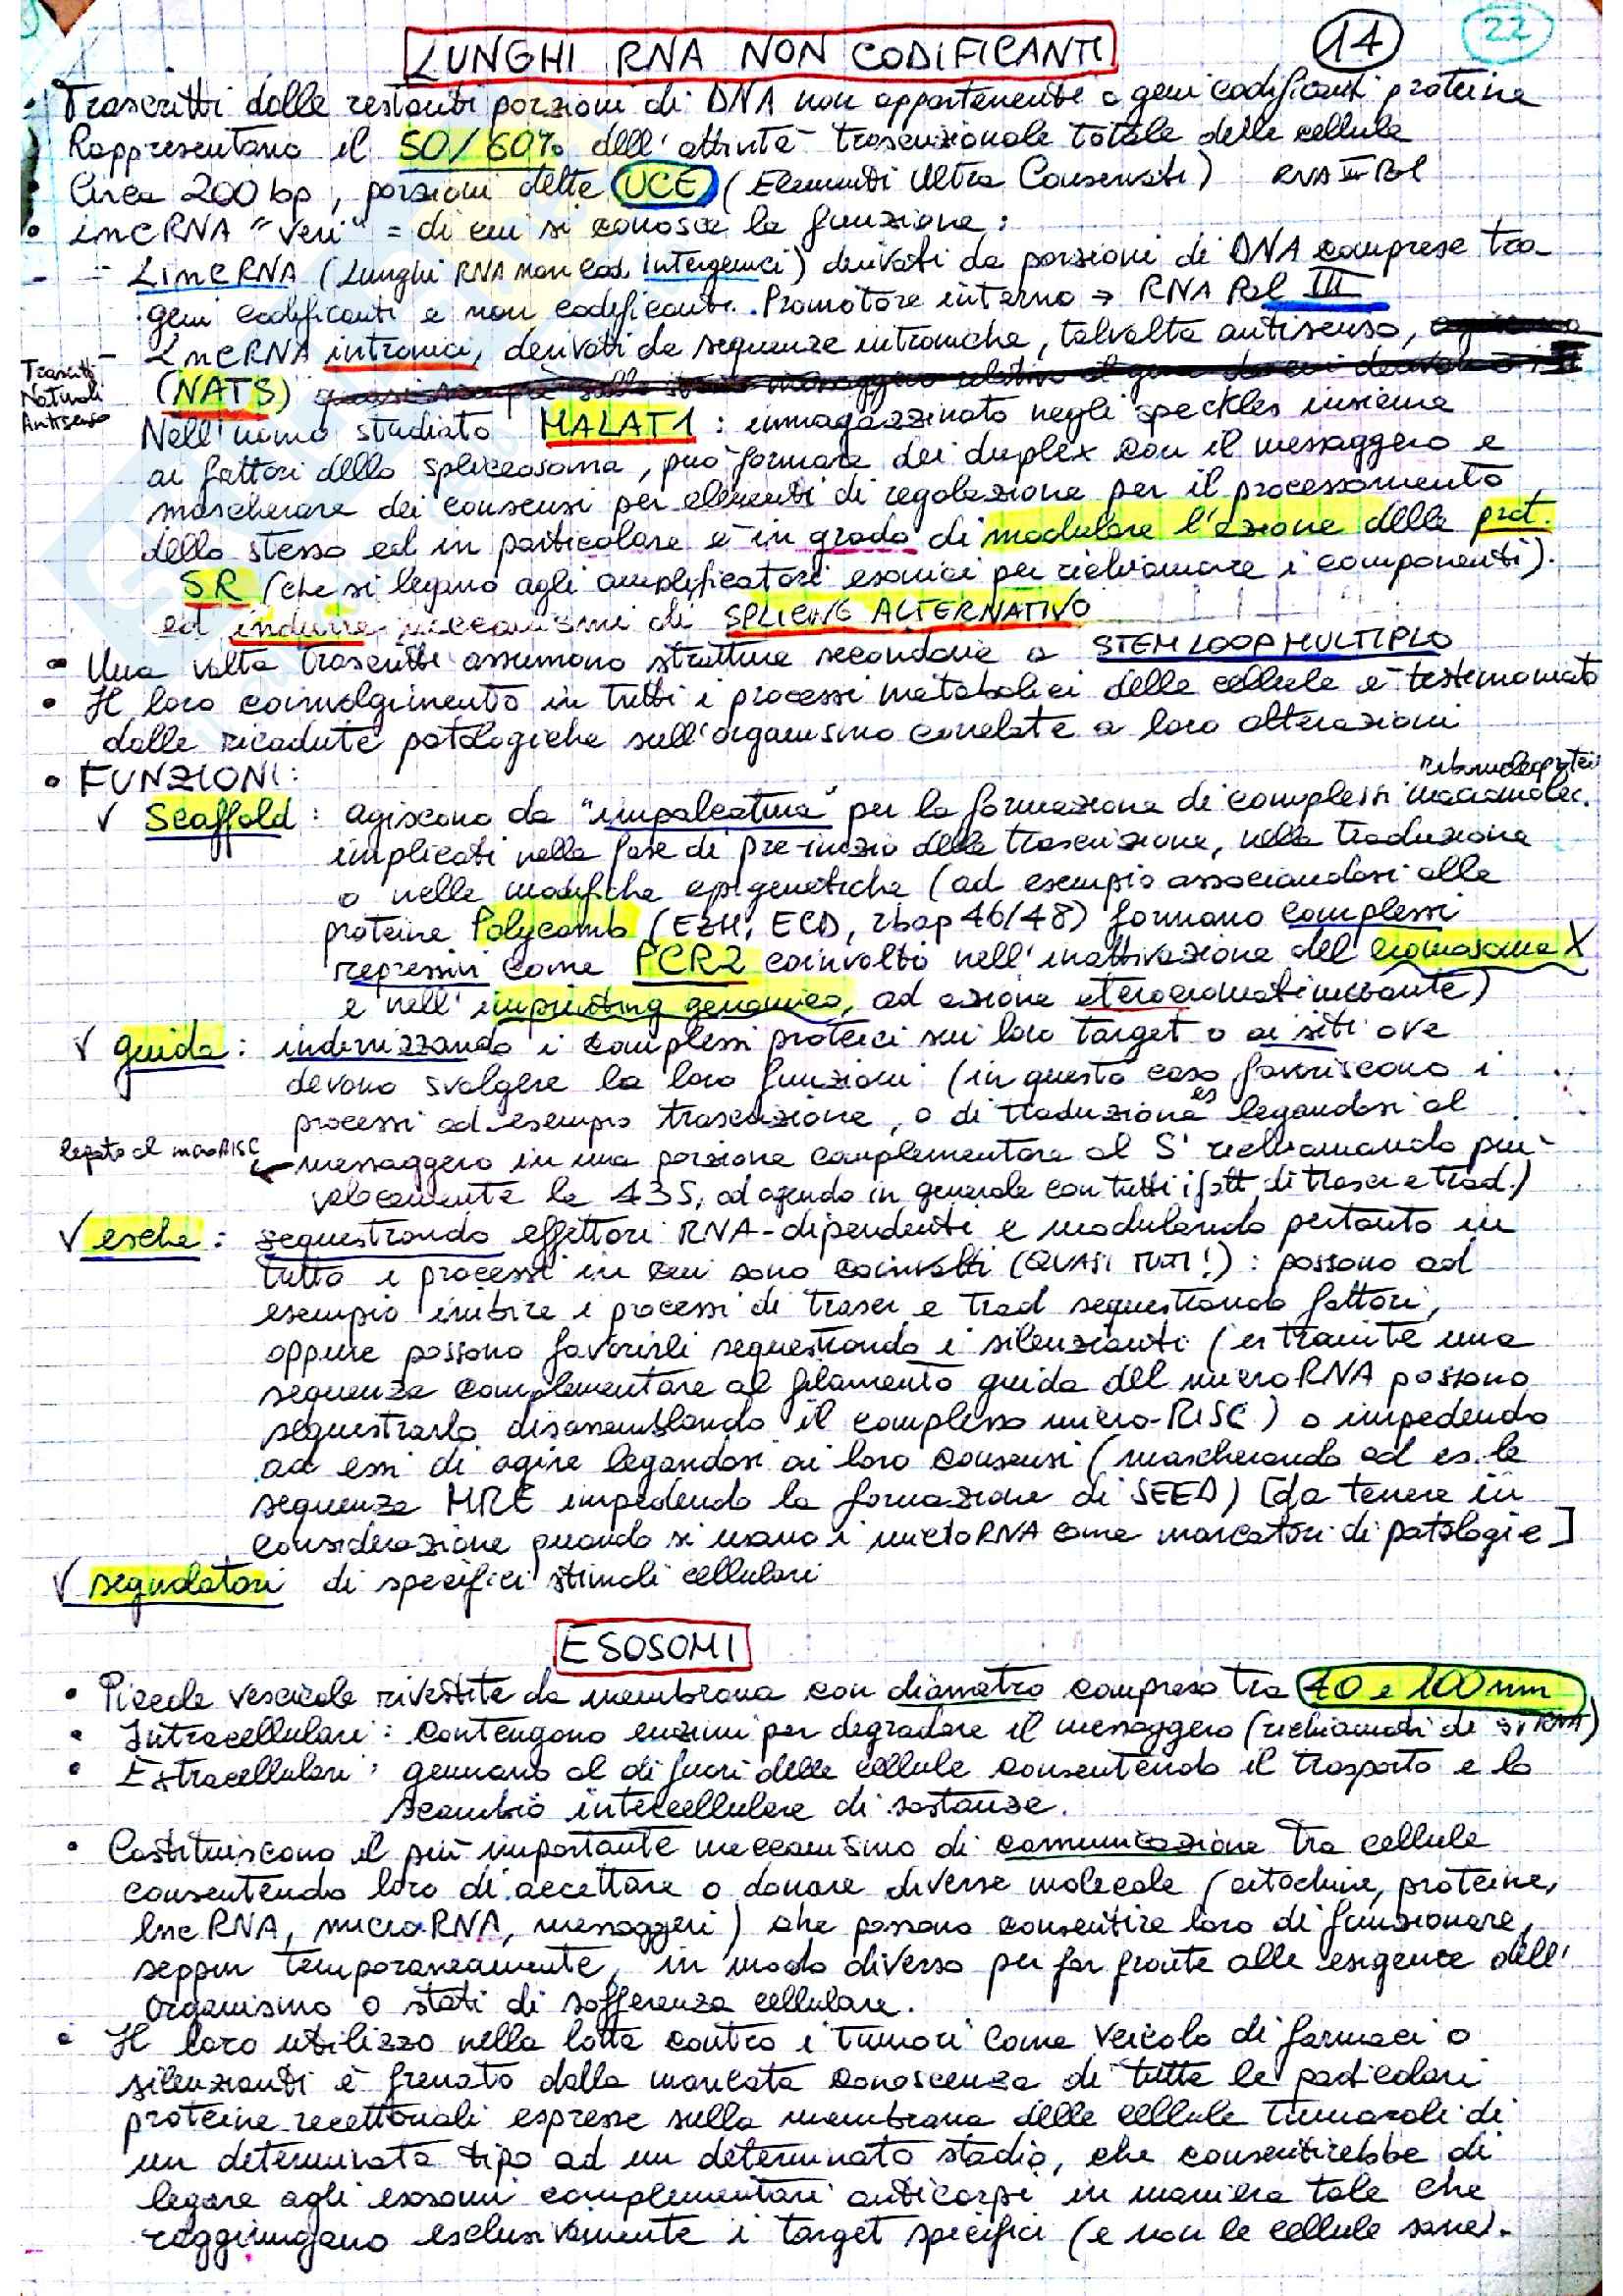 LUNGHI RNA NON CODIFICANTI 14 22
• Trascritti dalle restanti porzioni di DNA non appartenenti a geni codificanti proteine
Rappresentano il 50/60% dell'attività trascrizionale totale delle cellule
• Circa 200 bp, porzioni delle UCE (Elementi Ultra Conservati) RNA III Pol
• LncRNA "veri" = di cui si conosce la funzione:
- LincRNA (Lunghi RNA non cod. Intergenici) derivati da porzioni di DNA comprese tra
geni codificanti e non codificanti. Promotore interno → RNA Pol III
- LncRNA intronici, derivati da sequenze introniche, talvolta antisenso,
Trascritti Naturali Antisenso
(NATS)
Nell'uomo studiato MALAT1: immagazzinato negli speckles insieme
ai fattori dello spliceosoma, può formare dei duplex con il messaggero e
mascherare dei consensi per elementi di regolazione per il processamento
dello stesso ed in particolare è in grado di modulare l'azione delle prot.
SR (che si legano agli amplificatori esonici per richiamare i componenti).
ed indurre meccanismi di SPLICING ALTERNATIVO
• Una volta trascritti assumono strutture secondarie a STEM LOOP MULTIPLO
• Il loro coinvolgimento in tutti i processi metabolici delle cellule è testimoniato
dalle ricadute patologiche sull'organismo correlate a loro alterazioni
• FUNZIONI:
ribonucleoprotei
√ Scaffold: agiscono da "impalcatura" per la formazione di complessi macromolec.
implicati nella fase di pre-inizio della trascrizione, nella traduzione
o nelle modifiche epigenetiche (ad esempio associandosi alle
proteine Polycomb (EZH, ECD, rbap 46/48) formano complessi
repressivi come PCR2 coinvolto nell'inattivazione del cromosoma X
e nell'imprinting genomico, ad azione eterocromatinizzante)
√ guida: indirizzando i complessi proteici sui loro target o ai siti ove
devono svolgere la loro funzioni (in questo caso favoriscono i
processi ad esempio trascrizione, o di traduzione es legandosi al
legato al microRISC
messaggero in una porzione complementare al 5' richiamando più
velocemente la 43S, ad agendo in generale con tutti i fatt. di trascr e trad.)
√ esche: sequestrando effettori RNA-dipendenti e modulando pertanto in
tutto i processi in cui sono coinvolti (QUASI TUTTI!): possono ad
esempio inibire i processi di trascr e trad sequestrando fattori,
oppure possono favorirli sequestrando i silenzianti (es tramite una
sequenza complementare al filamento guida del microRNA possono
sequestrarlo disassemblando il complesso micro-RISC) o impedendo
ad essi di agire legandosi ai loro consensi (mascherando ad es. le
sequenze MRE impedendo la formazione di SEED) [da tenere in
considerazione quando si usano i microRNA come marcatori di patologie]
√ segnalatori di specifici stimoli cellulari
ESOSOMI
• Piccole vescicole rivestite da membrana con diametro compreso tra 40 e 100 nm
• Intracellulari: contengono enzimi per degradare il messaggero (richiamati da siRNA)
• Extracellulari: gemmano al di fuori delle cellule consentendo il trasporto e lo
scambio intercellulare di sostanze.
• Costituiscono il più importante meccanismo di comunicazione tra cellule
consentendo loro di accettare o donare diverse molecole (citochine, proteine,
lncRNA, microRNA, messaggeri) che possono consentire loro di funzionare,
seppur temporaneamente, in modo diverso per far fronte alle esigenze dell'
organismo o stati di sofferenza cellulare.
• Il loro utilizzo nella lotta contro i tumori come veicolo di farmaci o
silenzianti è frenato dalla mancata conoscenza di tutte le particolari
proteine recettoriali espresse sulla membrana delle cellule tumorali di
un determinato tipo ad un determinato stadio, che consentirebbe di
legare agli esosomi complementari anticorpi in maniera tale che
raggiungano esclusivamente i target specifici (e non le cellule sane).